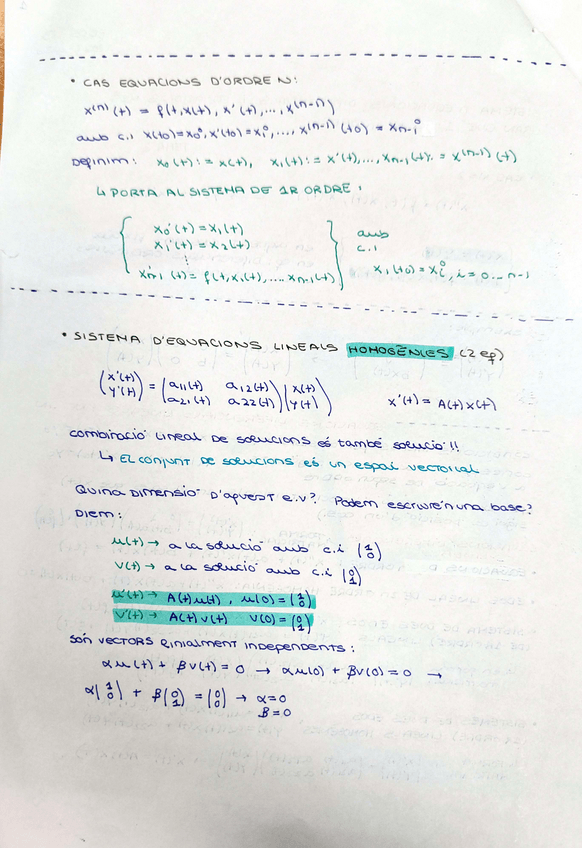 • CAS EQUACIONS D'ORDRE N:
x⁽ⁿ⁾(t) = f(t, x(t), x'(t),..., x⁽ⁿ⁻¹⁾)
amb c.i x(t0)=x0⁰, x'(t0)=x1⁰, ..., x⁽ⁿ⁻¹⁾(t0) = xn-1⁰
Definim: x0(t):= x(t), x1(t):= x'(t),..., xn-1(t):= x⁽ⁿ⁻¹⁾(t)
↳ PORTA AL SISTEMA DE 1R ORDRE:
x0'(t) = x1(t)
x1'(t) = x2(t)
⋮
xn-1'(t) = f(t, x1(t), .... xn-1(t))
amb
c.i
xi(t0) = xi⁰, i = 0...n-1
• SISTEMA D'EQUACIONS LINEALS HOMOGÈNIES (2 eq)
(x'(t) y'(t)) = (a11(t) a12(t) a21(t) a22(t)) (x(t) y(t)) x'(t) = A(t)x(t)
combinació lineal de solucions és també solució!!
↳ El conjunt de solucions és un espai vectorial
Quina dimensió d'aquest e.v? Podem escriure'n una base?
Diem:
u(t) → a la solució amb c.i (1 0)
v(t) → a la solució amb c.i (0 1)
u'(t) → A(t)u(t), u(0) = (1 0)
v'(t) → A(t)v(t) v(0) = (0 1)
són vectors linialment independents:
αu(t) + βv(t) = 0 → αu(0) + βv(0) = 0 →
α(1 0) + β(0 1) = (0 0) → α=0
β=0